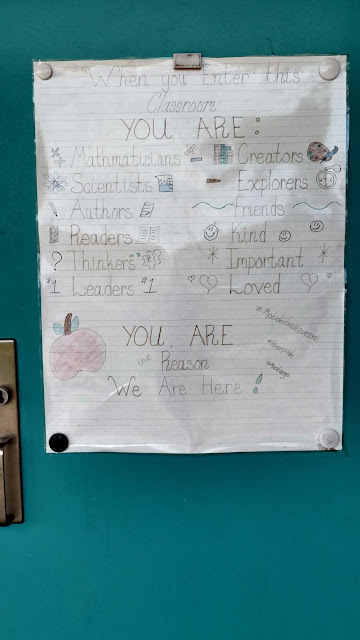 When you Enter this
Classroom
YOU ARE:
Mathmaticians Creators
Scientists Explorers
Authors Friends
Readers Kind
? Thinkers Important
#1 Leaders #1 Loved
YOU ARE
the Reason
We Are Here!